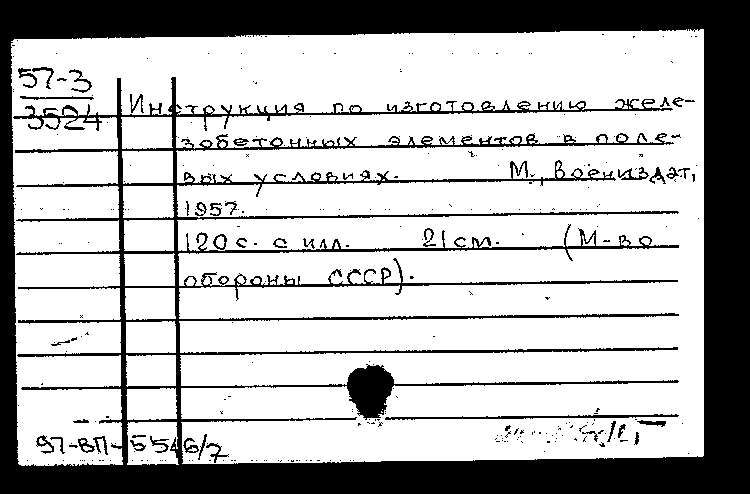 57-3
3524
Инструкция по изготовлению желе-
зобетонных элементов в поле-
вых условиях. М., Воениздат,
1957.
120 с. с илл. 21 см. (М-во
обороны СССР).
97-ВП-5546/7